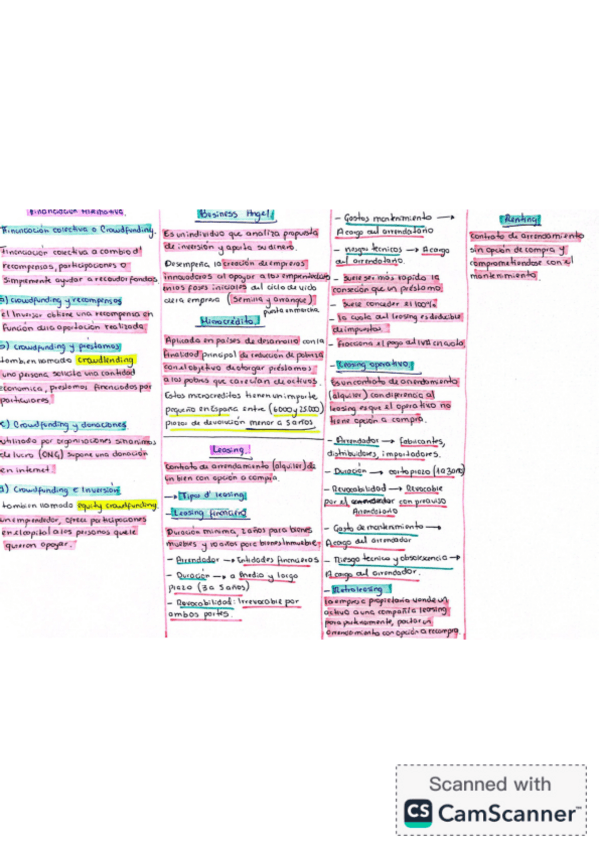 Financiación Alternativa.
Financiación colectiva o Crowdfunding.
Financiación colectiva a cambio d'
recompensas, participaciones o
simplemente ayudar a recaudar fondos.
a) crowdfunding y recompensas
el inversor obtiene una recompensa en
función dela aportación realizada.
b) crowdfunding y préstamos
también llamado crowdlending
una persona solicita una cantidad
economica, prestamos financiados por
particulares.
c) Crowdfunding y donaciones
utilizado por organizaciones sin animos
de lucro (ONG) supone una donación
en internet.
d) Crowdfunding e Inversión
también llamado equity crowdfunding.
un emprendedor, ofrece participaciones
en el capital a las personas que le
quieran apoyar.
Business Angel
Es un individuo que analiza propuesta
de inversión y aporta su dinero.
Desempeña la creación de empresas
innovadoras al apoyar a los emprendedores
en las fases iniciales del ciclo de vida
de la empresa (semilla y arranque)
puesta en marcha
Microcrédito
Aplicada en países de desarrollo con la
finalidad principal de reducción de pobreza
con el objetivo de otorgar préstamos
a los pobres que carecían de activos.
Estos microcreditos tienen un importe
pequeño en España entre (6000 y 25.000)
plazos de devolución menor a 5 años
Leasing.
Contrato de arrendamiento (alquiler) de
un bien con opción a compra.
→ Tipos d' leasing
- Leasing financiero
Duración minima, 2 años para bienes
muebles y 10 años para bienes inmuebles.
- Arrendador → Entidades financieras
- Duración → a medio y largo
plazo (3 a 5 años)
- Revocabilidad: Irrevocable por
ambas partes.
- Gastos mantenimiento →
A cargo del arrendatario
- riesgos tecnicos → A cargo
del arrendatario.
- Suele ser más rapida la
conseción que un préstamo.
- Suele conceder el 100%
- la cuota del leasing es deducible
de impuestos.
- Fracciona el pago del IVA en cuota
- Leasing operativo
Es un contrato de arrendamiento
(alquiler) con diferencia al
leasing es que el operativo no
tiene opción a compra.
- Arrendador → Fabricantes,
distribuidores, importadores.
- Duración → corto plazo (1 a 3 años)
- Revocabilidad → Revocable
por el con preaviso
Arrendatario
- Gastos de mantenimiento →
A cargo del arrendador
- Riesgo tecnico y obsolescencia →
A cargo del arrendador.
- Retroleasing
la empresa propietaria vende un
activo a una compañía leasing
para posteriormente, pactar un
arrendamiento con opción a recompra.
Renting
contrato de arrendamiento
sin opción de compra y
comprometiendose con el
mantenimiento.
Scanned with
CS CamScanner™